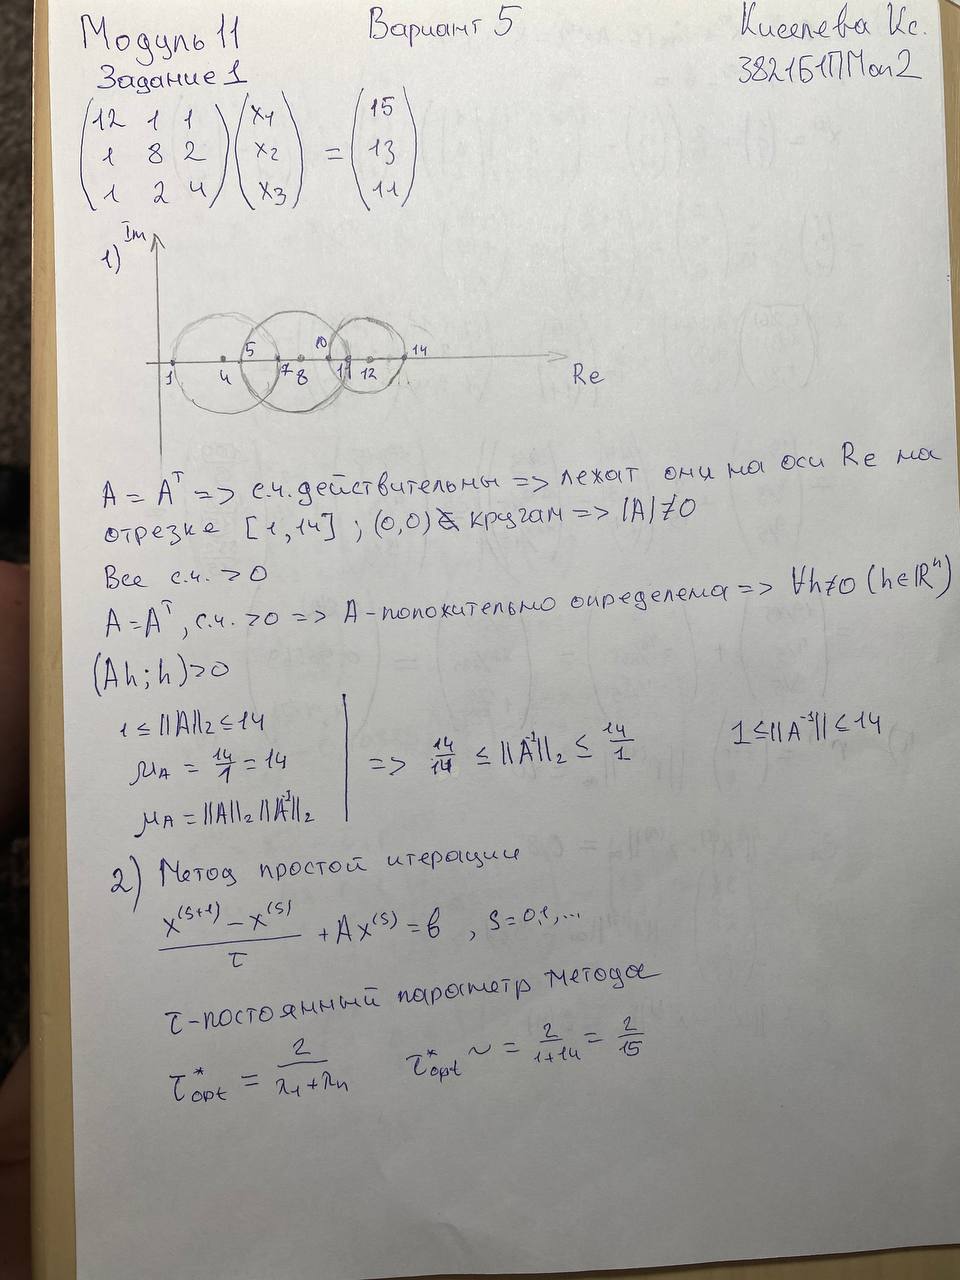 Модуль 11 Вариант 5 Киселева Кс.
Задание 1 3821Б1ПМоп2
(12 1 1) (x₁) (15)
(1 8 2) (x₂) = (13)
(1 2 4) (x₃) (11)
1) Im
1 4 5 7 8 10 11 12 14 Re
A = Aᵀ => с.ч. действительны => лежат они на оси Re на
отрезке [1,14] ; (0,0) ∉ кругам => |A| ≠ 0
Все с.ч. > 0
A = Aᵀ, с.ч. > 0 => A - положительно определена => ∀h≠0 (h∈ℝⁿ)
(Ah; h) > 0
1 ≤ ||A||₂ ≤ 14
μ_A = 14/1 = 14 => 14/14 ≤ ||A⁻¹||₂ ≤ 14/1 1 ≤ ||A⁻¹|| ≤ 14
μ_A = ||A||₂ ||A⁻¹||₂
2) Метод простой итерации
(x⁽ˢ⁺¹⁾ - x⁽ˢ⁾)/τ + Ax⁽ˢ⁾ = b , s = 0,1,...
τ - постоянный параметр метода
τ*opt = 2/(λ₁+λn) τ*opt ~ = 2/(1+14) = 2/15